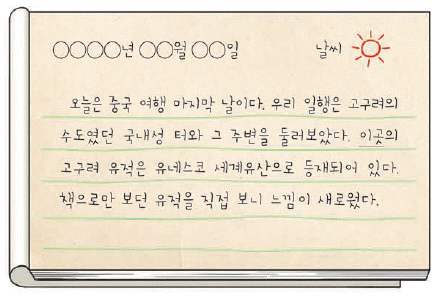 ○○○○년 ○○월 ○○일 날씨
오늘은 중국 여행 마지막 날이다. 우리 일행은 고구려의
수도였던 국내성 터와 그 주변을 둘러보았다. 이곳의
고구려 유적은 유네스코 세계유산으로 등재되어 있다.
책으로만 보던 유적을 직접 보니 느낌이 새로웠다.